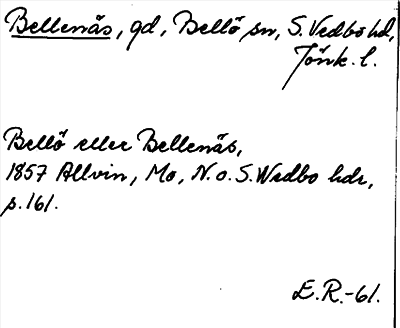 Bellenäs, gd, Bellö sn, S. Vedbo hd,
Jönk. l.
Bellö eller Bellenäs,
1857 Allvin, Mo, N. o. S. Wedbo hdr,
s. 161.
E. R. -61.